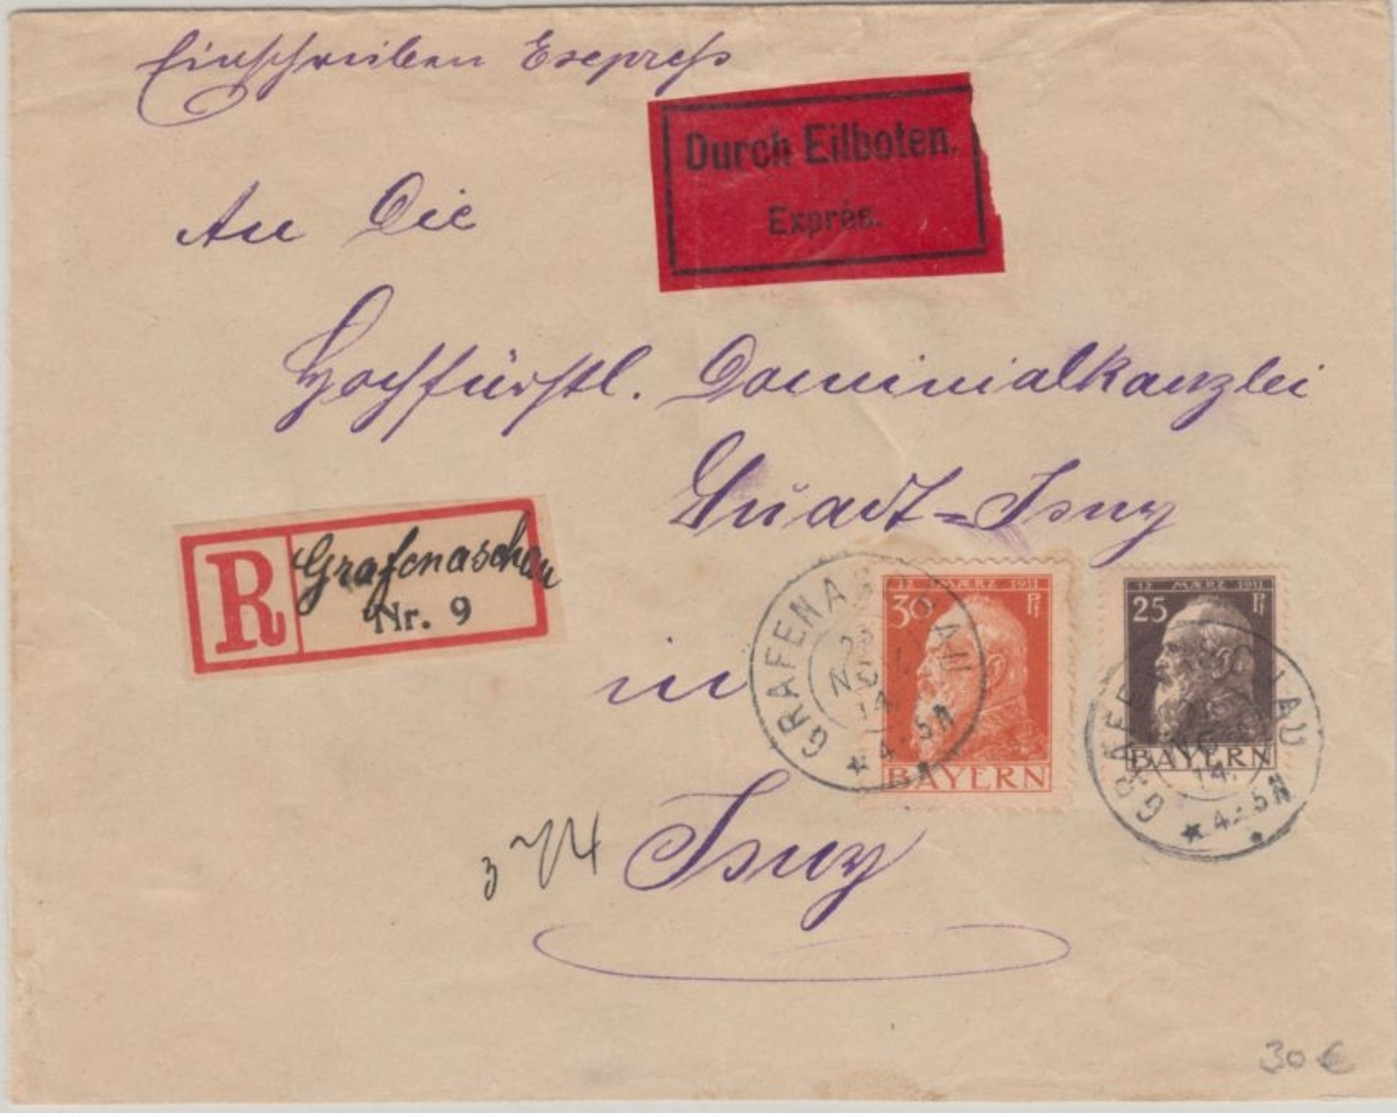 Einschreiben Exepreſs
Durch Eilboten.
Exprès.
An Die
Hochfürstl. Dominialkanzlei
Quadt-Isny
R
Grafenaschau
Nr. 9
in
Isny
12 MÆRZ 1911
30 Pf
BAYERN
12 MÆRZ 1911
25 Pf
BAYERN
GRAFENASCHAU
NOV
14.
* 4-5N
GRAFENASCHAU
NOV
14.
* 4-5N
30 €